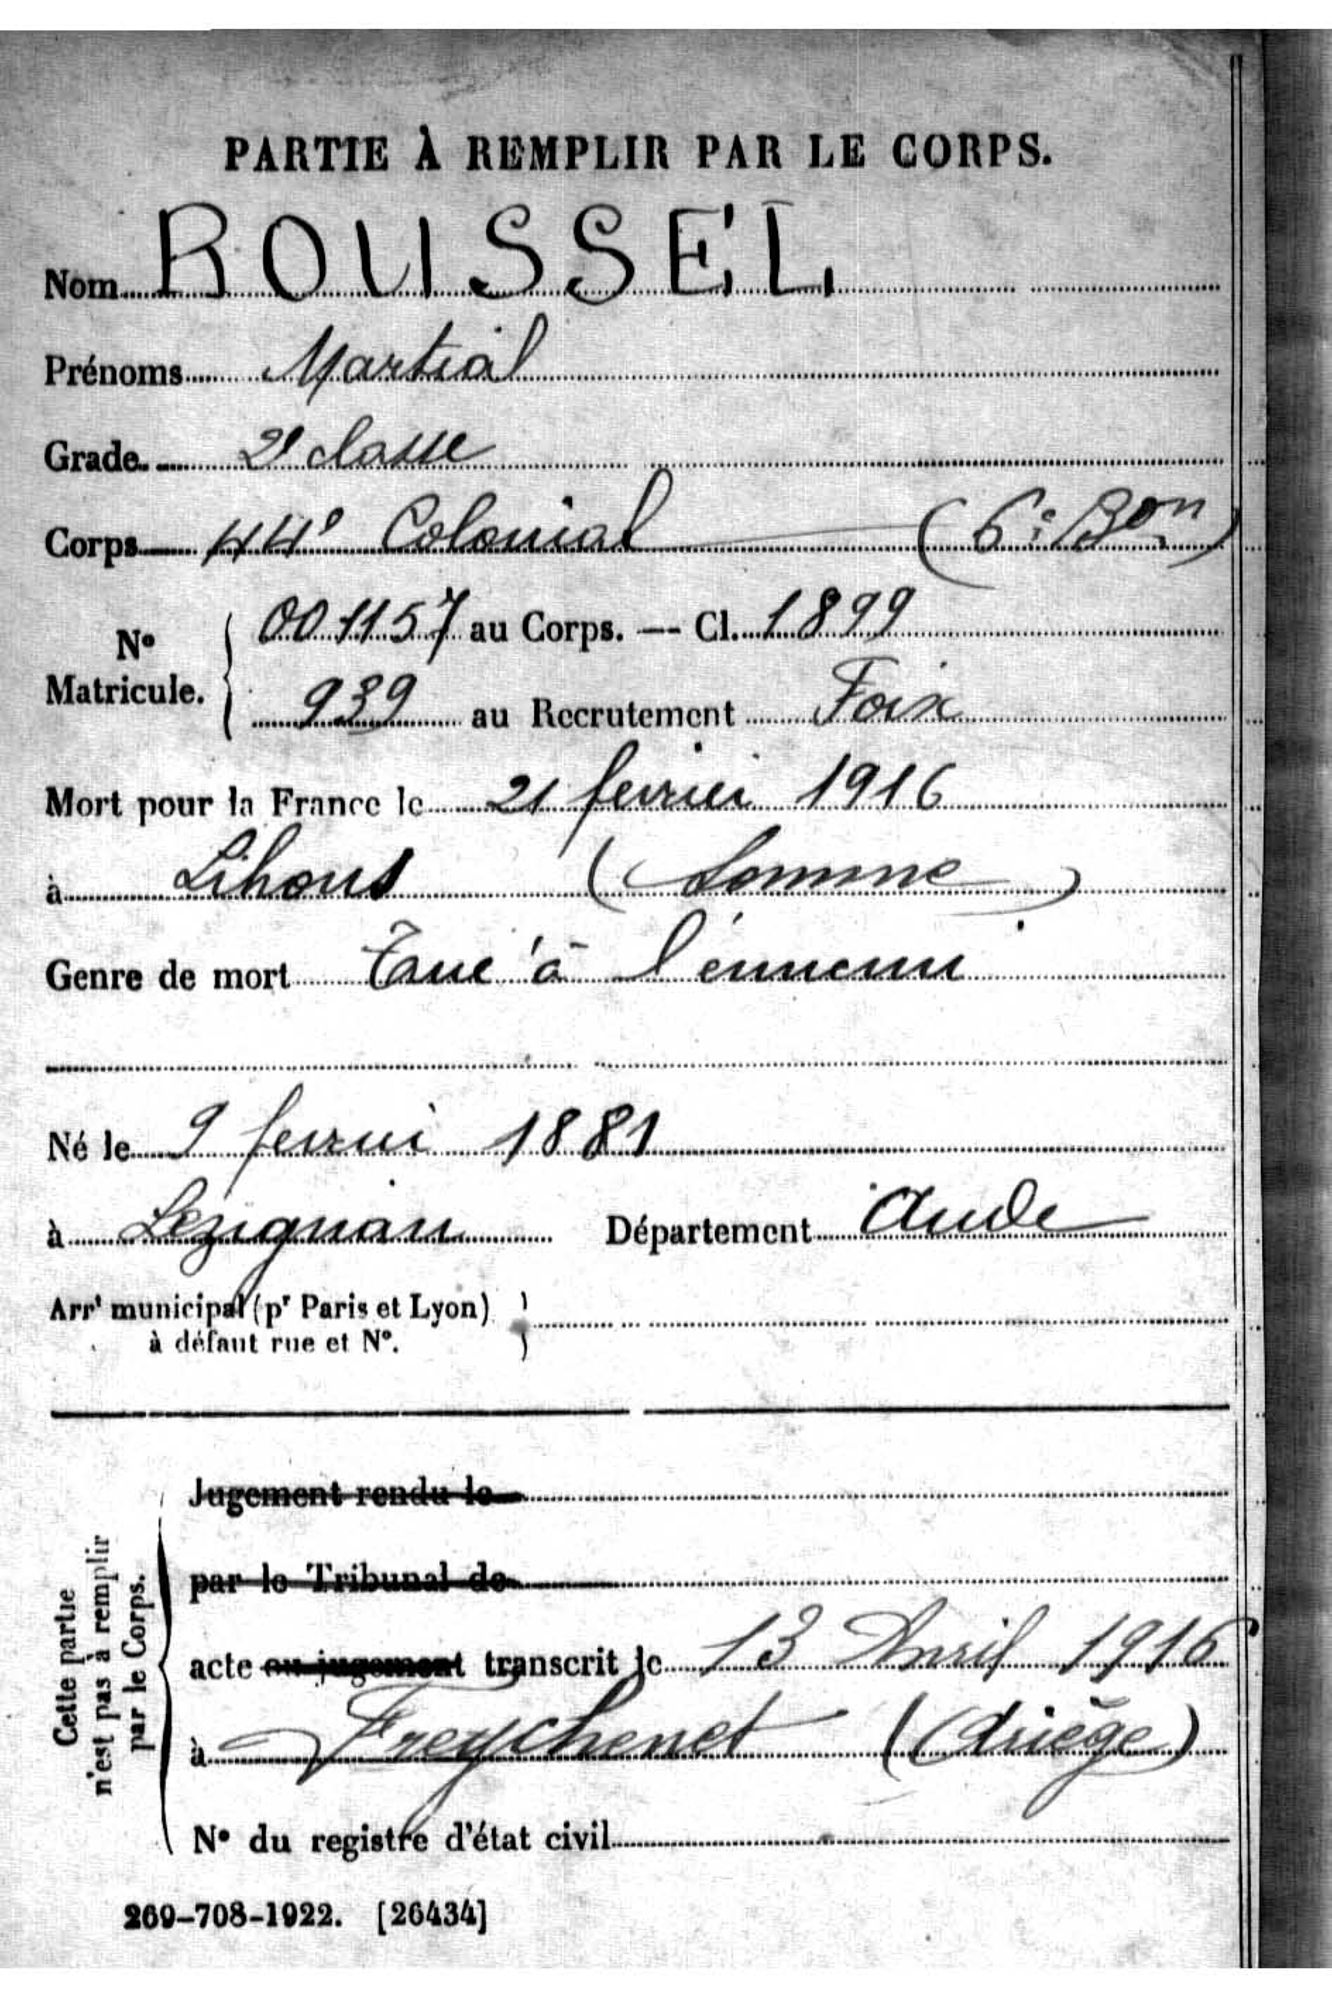 PARTIE À REMPLIR PAR LE CORPS.
Nom ROUSSEL
Prénoms Martial
Grade 2e classe
Corps 44e Colonial (6e Bon)
No Matricule. 001157 au Corps. — Cl. 1899
939 au Recrutement Foix
Mort pour la France le 21 fevrier 1916
à Lihons (Somme)
Genre de mort Tué à l'ennemi
Né le 9 fevrier 1881
à Lezignan Département Aude
Arrt municipal (pr Paris et Lyon)
à défaut rue et No.
Cette partie
n'est pas à remplir
par le Corps.
Jugement rendu le
par le Tribunal de
acte ou jugement transcrit le 13 Avril 1916
à Freychenet (Ariège)
No du registre d'état civil
269-708-1922. [26434]